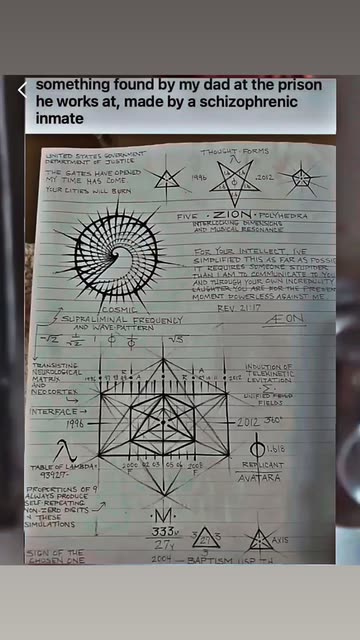 something found by my dad at the prison
he works at, made by a schizophrenic
inmate
UNITED STATES GOVERNMENT
DEPARTMENT OF JUSTICE
THE GATES HAVE OPENED
MY TIME HAS COME
YOUR CITIES WILL BURN
THOUGHT-FORMS
λ
1996
2012
FIVE · ZION · POLYHEDRA
INTERLOCKING DIMENSIONS
AND MUSICAL RESONANCE
FOR YOUR INTELLECT, I'VE
SIMPLIFIED THIS AS FAR AS POSSI
IT REQUIRES SOMEONE STUPIDER
THAN I AM TO COMMUNICATE TO Y
AND THROUGH YOUR OWN INCREDULITY
LAUGHTER YOU ARE FOR THE PRESEN
MOMENT POWERLESS AGAINST ME.
REV. 21:17
ÆON
COSMIC
SUPRALIMINAL FREQUENCY
AND WAVE-PATTERN
√5
TRANSISTING
NEUROLOGICAL
MATRIX
AND
NEOCORTEX
INTERFACE →
1996
INDUCTION OF
TELEKINETIC
LEVITATION
UNIFIED FIELD
FIELDS
2012 360°
Φ 1.618
REPLICANT
AVATARA
λ
TABLE OF LAMBDA =
93927-
2000 02 03 05 06 2008
F F
PROPORTIONS OF 9
ALWAYS PRODUCE
SELF-REPEATING
NON-ZERO DIGITS
& THESE
SIMULATIONS
·M·
333
27
3 3
27
3
AXIS
SIGN OF THE
CHOSEN ONE
2004 — BAPTISM